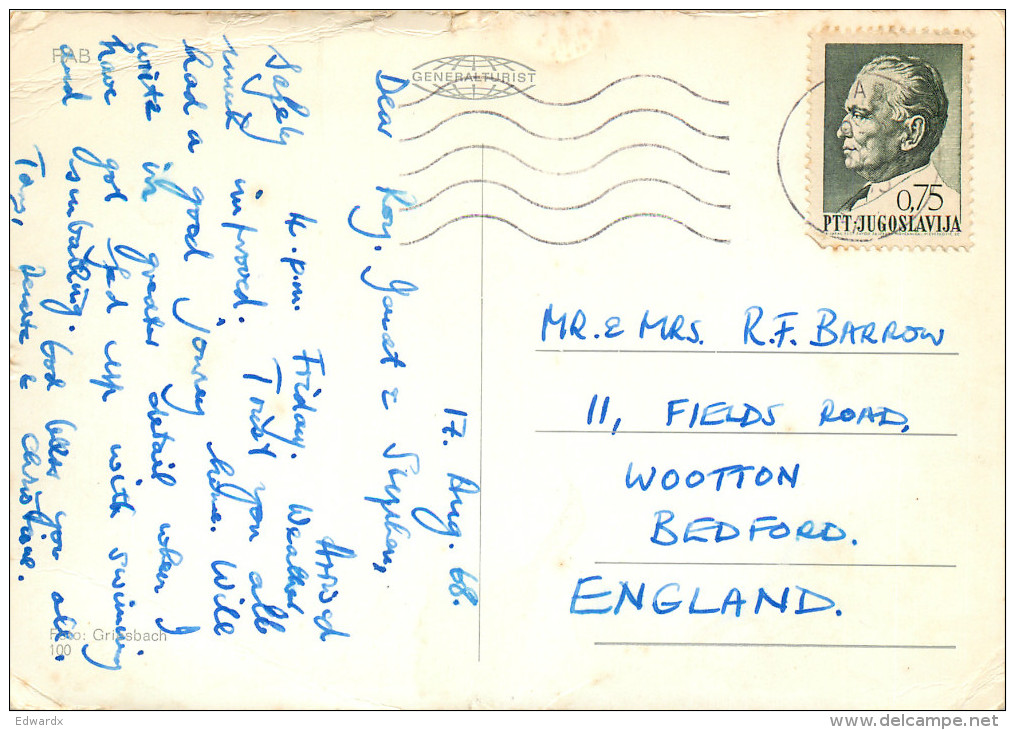 RAB
GENERALTURIST
17. Aug. 68.
Dear Roy, Janet & Stephen,
Arrived
safely 4.p.m. Friday. Weather
much improved. Trust you all
had a good jouney home. Will
write in greater detail when I
have got fed up with swimming
and sunbathing. God bless you all.
Tony, &
Christiane.
Foto: Griesbach
100
0,75
PTT·JUGOSLAVIJA
MR. & MRS. R.F. BARROW
11, FIELDS ROAD,
WOOTTON
BEDFORD.
ENGLAND.
Edwardx
www.delcampe.net